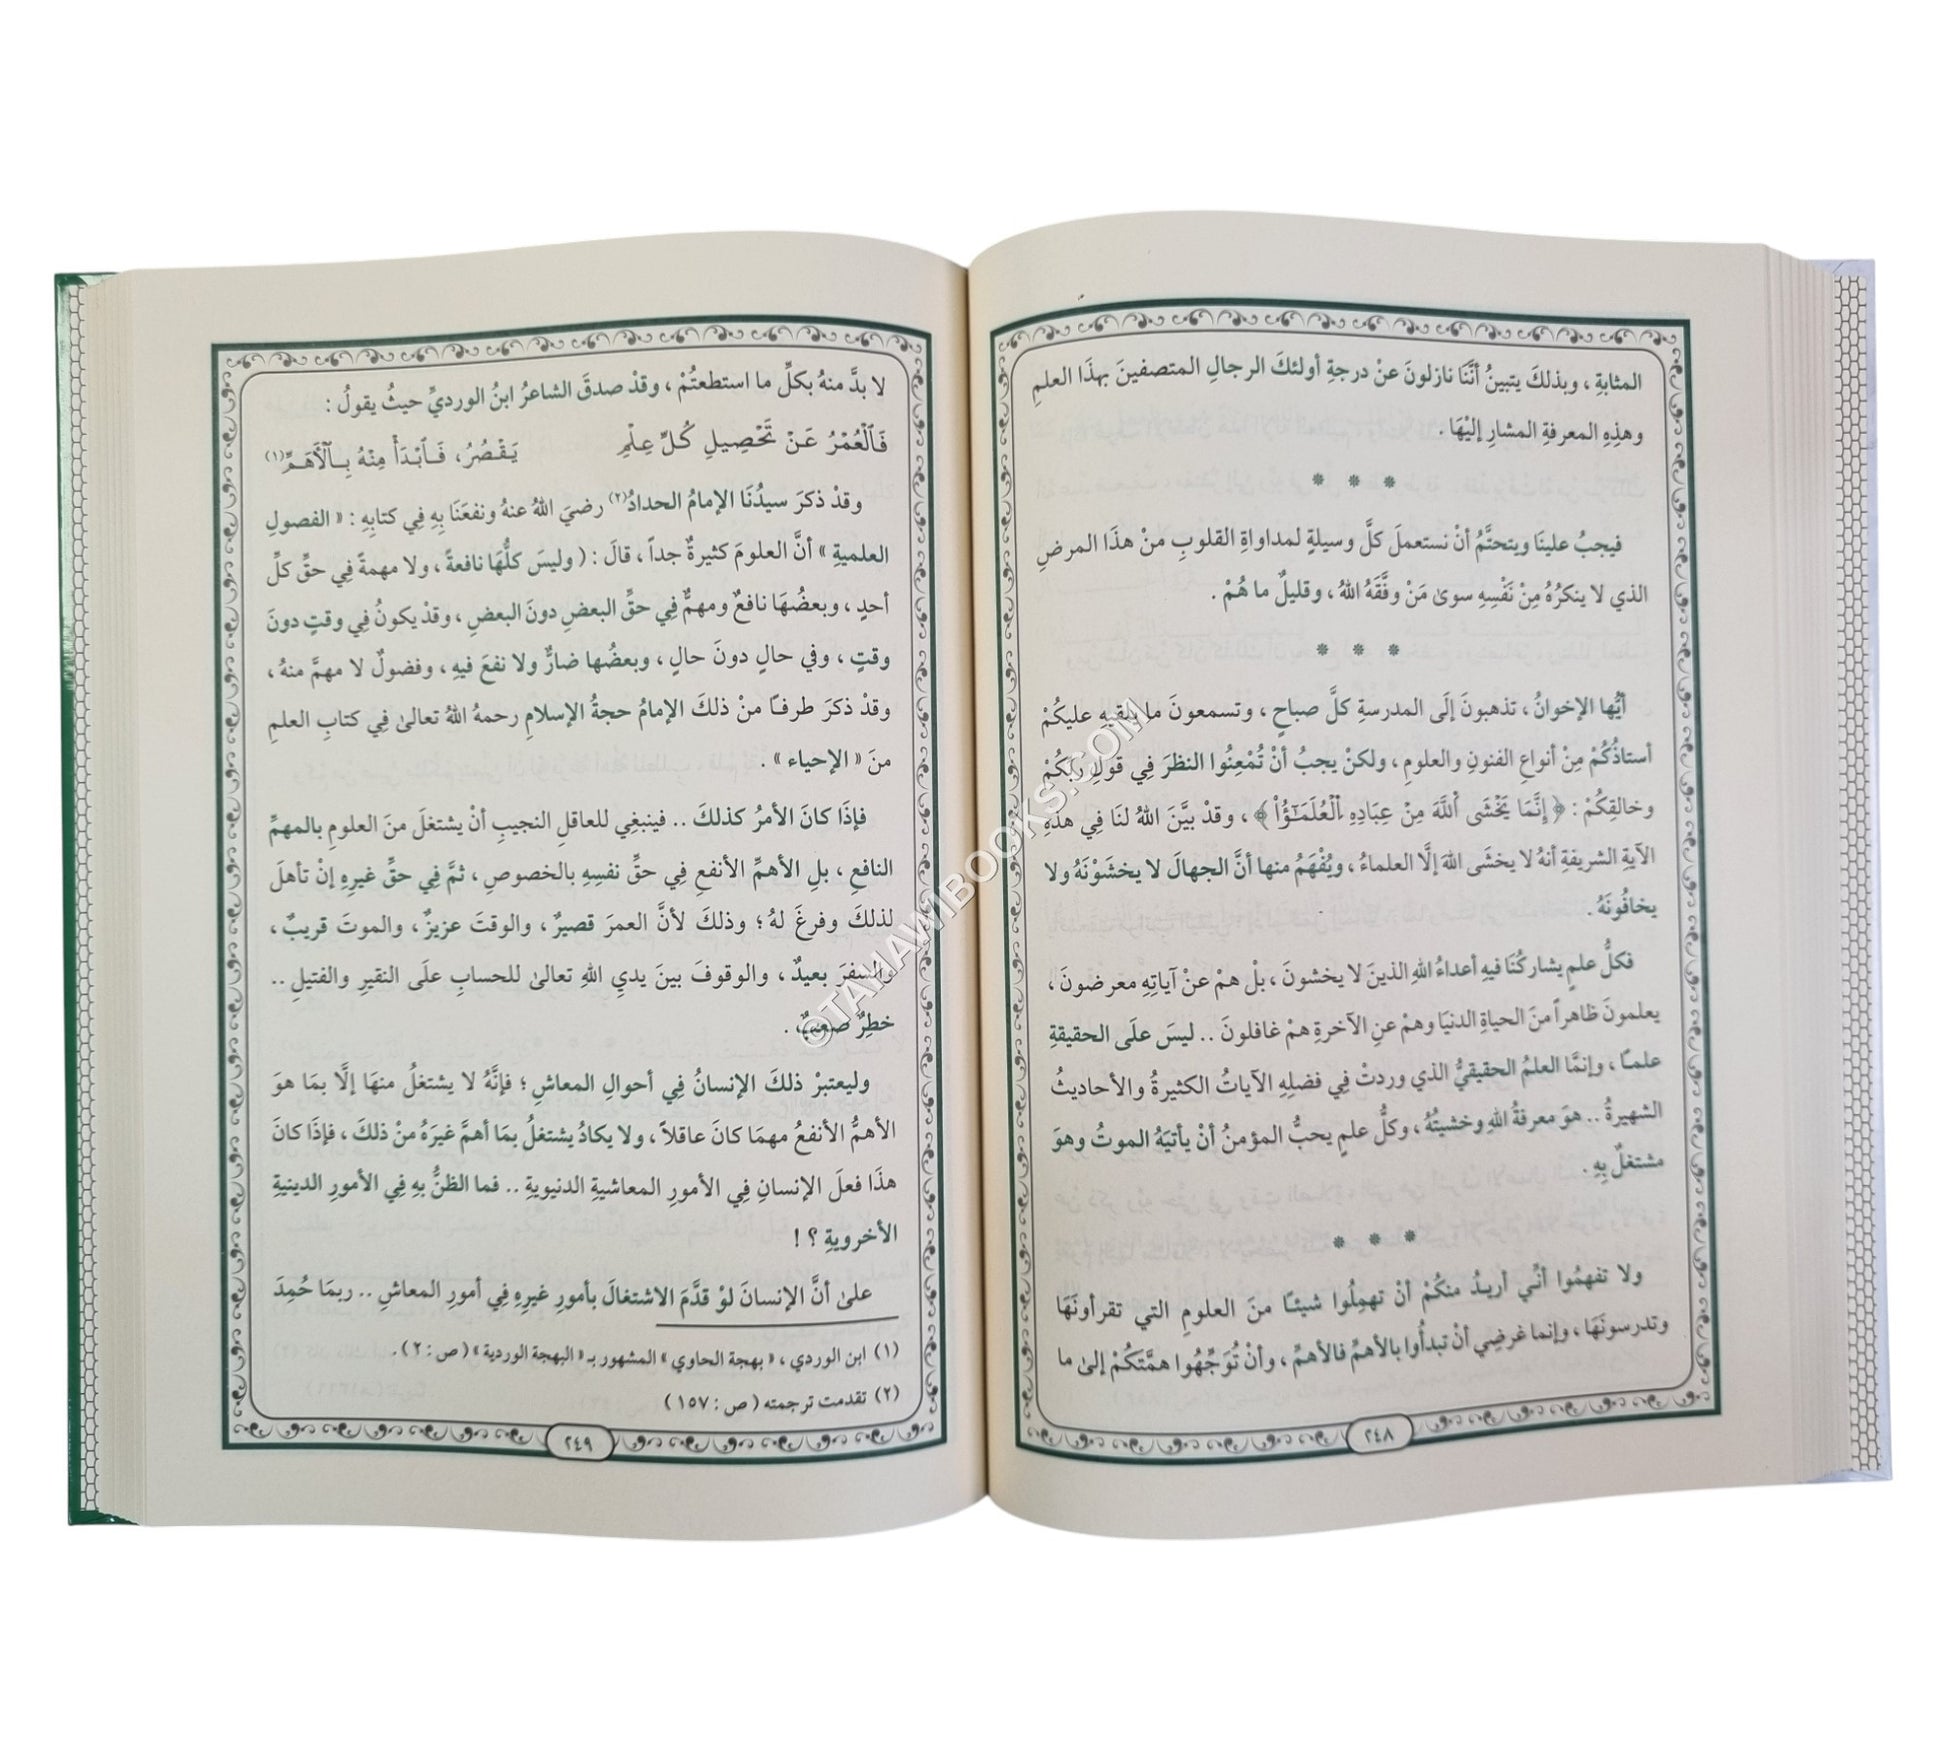 المثابةِ ، وبذلكَ يتبينُ أنَّنَا نازلونَ عنْ درجةِ أولئكَ الرجالِ المتصفينَ بهذَا العلمِ
وهذِهِ المعرفةِ المشارِ إليْهَا .
* * *
فيجبُ علينَا ويتحتَّمُ أنْ نستعملَ كلَّ وسيلةٍ لمداواةِ القلوبِ منْ هذَا المرضِ
الذي لا ينكرُهُ مِنْ نَفْسِهِ سوىٰ مَنْ وفَّقَهُ اللهُ ، وقليلٌ ما هُمْ .
* * *
أيُّها الإخوانُ ، تذهبونَ إلَى المدرسةِ كلَّ صباحٍ ، وتسمعونَ ما يلقيهِ عليكُمْ
أستاذُكُمْ مِنْ أنواعِ الفنونِ والعلومِ ، ولكنْ يجبُ أنْ تُمْعِنُوا النظرَ فِي قولِ ربِّكُمْ
وخالقِكُمْ : ﴿ إِنَّمَا يَخْشَى ٱللَّهَ مِنْ عِبَادِهِ ٱلْعُلَمَٰٓؤُا۟ ﴾ ، وقدْ بيَّنَ اللهُ لنَا فِي هذهِ
الآيةِ الشريفةِ أنهُ لا يخشَى اللهَ إلَّا العلماءُ ، ويُفْهَمُ منها أنَّ الجهالَ لا يخشَوْنَهُ ولا
يخافُونَهُ .
فكلُّ علمٍ يشاركُنَا فيهِ أعداءُ اللهِ الذينَ لا يخشونَ ، بلْ همْ عنْ آياتِهِ معرضونَ ،
يعلمونَ ظاهراً منَ الحياةِ الدنيَا وهمْ عنِ الآخرةِ همْ غافلونَ .. ليسَ علَى الحقيقةِ
علمـًا ، وإنمَّا العلمُ الحقيقيُّ الذي وردتْ فِي فضلِهِ الآياتُ الكثيرةُ والأحاديثُ
الشهيرةُ .. هوَ معرفةُ اللهِ وخشيتُهُ ، وكلُّ علمٍ يحبُّ المؤمنُ أنْ يأتيَهُ الموتُ وهوَ
مشتغلٌ بِهِ .
* * *
ولا تفهمُوا أنِّي أريـدُ منكُمْ أنْ تهمِلُوا شيئـًا منَ العلومِ التي تقرأونَهَا
وتدرسونَهَا ، وإنما غرضِي أنْ تبدأُوا بالأهمِّ فالأهمِّ ، وأنْ تُوَجِّهُوا همَّتَكُمْ إلىٰ ما
٢٤٨
لا بدَّ منهُ بكلِّ ما استطعتُمْ ، وقدْ صدقَ الشاعرُ ابنُ الورديِّ حيثُ يقولُ :
فَٱلْعُمْرُ عَنْ تَحْصِيلِ كُلِّ عِلْمِ يَقْصُرُ، فَٱبْدَأْ مِنْهُ بِٱلْأَهَمِّ(١)
وقدْ ذكرَ سيدُنَا الإمامُ الحدادُ(٢) رضيَ اللهُ عنهُ ونفعَنَا بِهِ فِي كتابِهِ : « الفصولِ
العلميةِ » أنَّ العلومَ كثيرةٌ جداً ، قالَ : ( وليسَ كلُّهَا نافعةً ، ولا مهمةً فِي حقِّ كلِّ
أحدٍ ، وبعضُهَا نافعٌ ومهمٌّ فِي حقِّ البعضِ دونَ البعضِ ، وقدْ يكونُ فِي وقتٍ دونَ
وقتٍ ، وفي حالٍ دونَ حالٍ ، وبعضُها ضارٌّ ولا نفعَ فيهِ ، وفضولٌ لا مهمَّ منهُ ،
وقدْ ذكرَ طرفـًا منْ ذلكَ الإمامُ حجةُ الإسلامِ رحمهُ اللهُ تعالىٰ فِي كتابِ العلمِ
منَ « الإحياء » .
فإذَا كانَ الأمرُ كذلكَ .. فينبغِي للعاقلِ النجيبِ أنْ يشتغلَ منَ العلومِ بالمهمِّ
النافعِ ، بلِ الأهمِّ الأنفعِ فِي حقِّ نفسِهِ بالخصوصِ ، ثمَّ فِي حقِّ غيرِهِ إنْ تأهلَ
لذلكَ وفرغَ لهُ ؛ وذلكَ لأنَّ العمرَ قصيرٌ ، والوقتَ عزيزٌ ، والموتَ قريبٌ ،
والسفرَ بعيدٌ ، والوقوفَ بينَ يديِ اللهِ تعالىٰ للحسابِ علَى النقيرِ والفتيلِ ..
خطِرٌ صعبٌ .
وليعتبرْ ذلكَ الإنسانُ فِي أحوالِ المعاشِ ؛ فإنَّهُ لا يشتغلُ منهَا إلَّا بمَا هوَ
الأهمُّ الأنفعُ مهمَا كانَ عاقلاً ، ولا يكادُ يشتغلُ بمَا أهمَّ غيرَهُ منْ ذلكَ ، فإذَا كانَ
هذَا فعلَ الإنسانِ فِي الأمورِ المعاشيةِ الدنيويةِ .. فما الظنُّ بِهِ فِي الأمورِ الدينيةِ
الأخرويةِ ؟ !
علىٰ أنَّ الإنسانَ لوْ قدَّمَ الاشتغالَ بأمورِ غيرِهِ فِي أمورِ المعاشِ .. ربمَا حُمِدَ
(١) ابن الوردي ، « بهجة الحاوي » المشهور بـ « البهجة الوردية » ( ص : ٢ ) .
(٢) تقدمت ترجمته ( ص : ١٥٧ )
٢٤٩
©TAHAWIBOOKS.COM